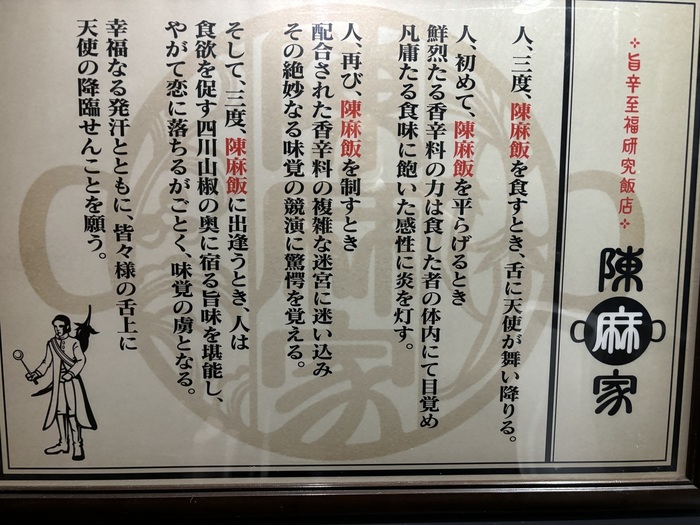 ✧旨辛至福研究飯店✧
陳麻家
人、三度、陳麻飯を食すとき、舌に天使が舞い降りる。
人、初めて、陳麻飯を平らげるとき
鮮烈たる香辛料の力は食した者の体内にて目覚め
凡庸たる食味に飽いた感性に炎を灯す。
人、再び、陳麻飯を制すとき
配合された香辛料の複雑な迷宮に迷い込み
その絶妙なる味覚の競演に驚愕を覚える。
そして、三度、陳麻飯に出逢うとき、人は
食欲を促す四川山椒の奥に宿る旨味を堪能し、
やがて恋に落ちるがごとく、味覚の虜となる。
幸福なる発汗とともに、皆々様の舌上に
天使の降臨せんことを願う。